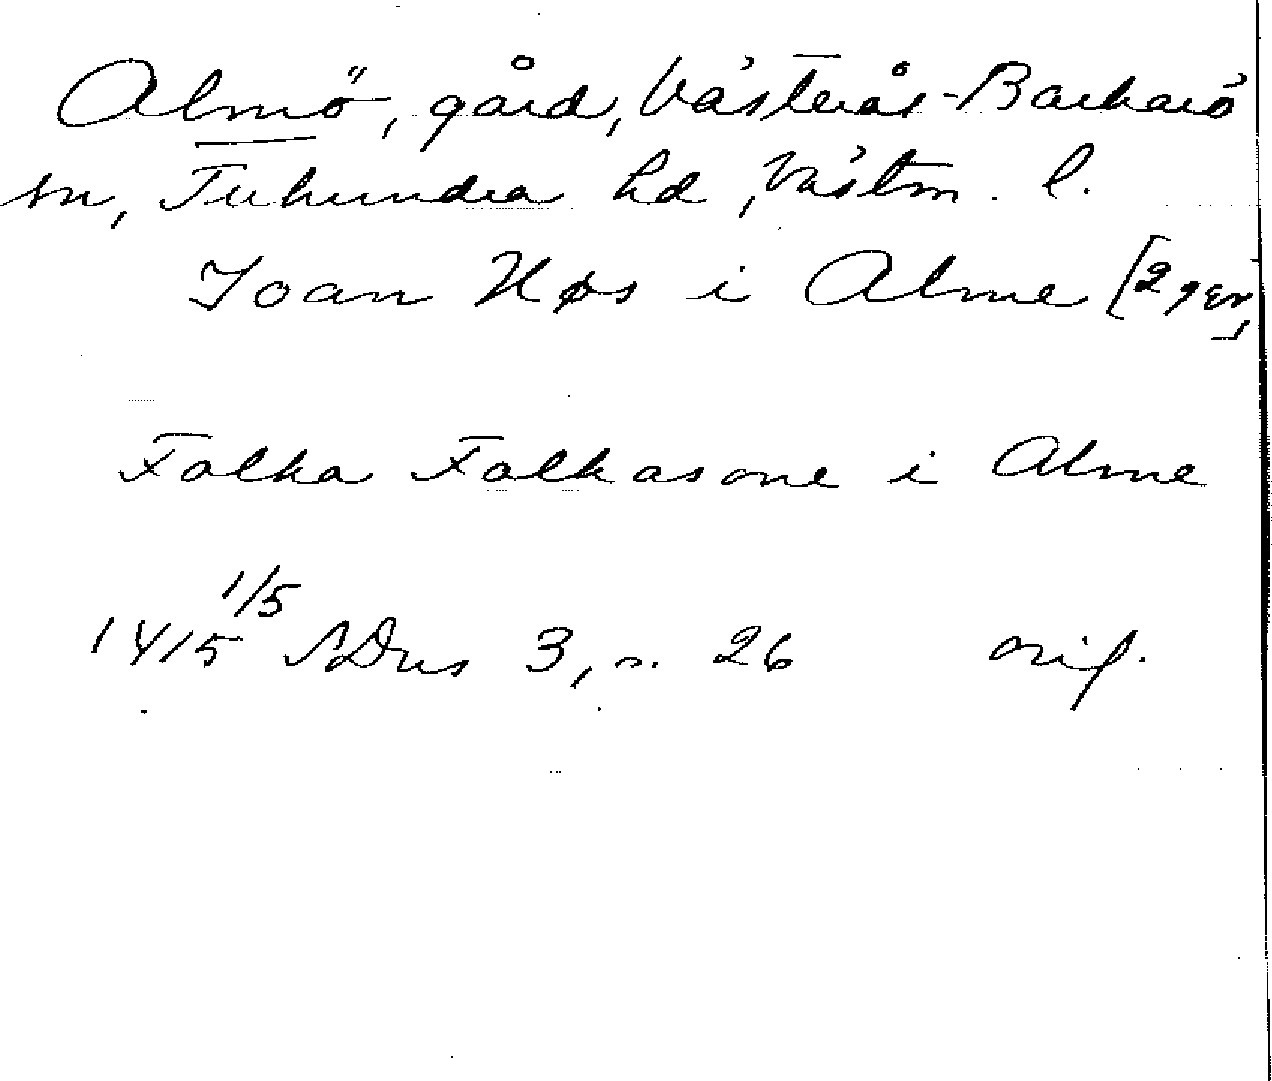 Almö, gård, Västerås-Barkarö
sn, Tuhundra hd, Västm. l.
Joan Høs i Alme [2 ggr]
Falka Falkasone i Alme
1415 1/5 SDns 3, n. 26 orig.